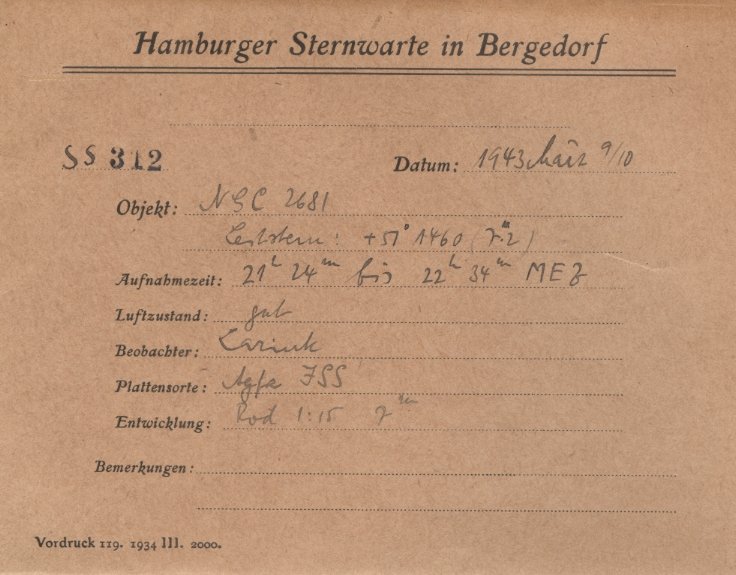 Hamburger Sternwarte in Bergedorf
SS 312 Datum: 1943 März 9/10
Objekt: NGC 2681
Leitstern: +51° 1460 (7.ᵐ2)
Aufnahmezeit: 21ʰ 24ᵐ bis 22ʰ 34ᵐ MEZ
Luftzustand: gut
Beobachter:
Plattensorte: Agfa ISS
Entwicklung: Rod 1:15 7ᵐ
Bemerkungen:
Vordruck 119. 1934 III. 2000.